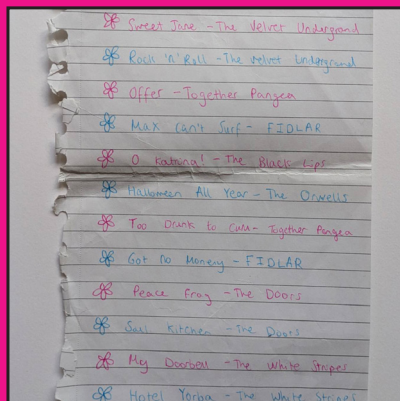 Sweet Jane - The Velvet Underground
Rock 'n' Roll - The Velvet Underground
Offer - Together Pangea
Max Can't Surf - FIDLAR
O Katrina! - The Black Lips
Halloween All Year - The Orwells
Too Drunk to Cum - Together Pangea
Got No Money - FIDLAR
Peace Frog - The Doors
Soul Kitchen - The Doors
My Doorbell - The White Stripes
Hotel Yorba - The White Stripes